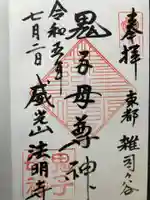 奉拝
東都 雑司ヶ谷
鬼子母尊神
威光山 法明寺
令和五年
七月二日